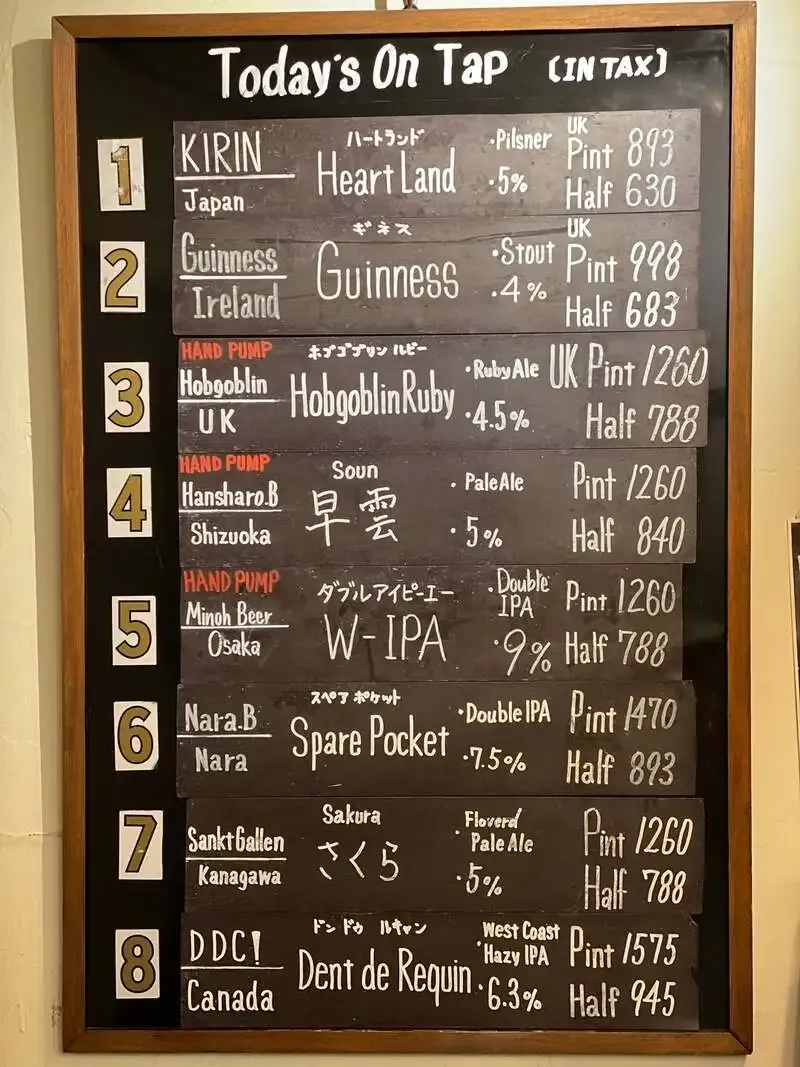 Today's On Tap (IN TAX)
1
KIRIN
Japan
ハートランド
Heart Land
・Pilsner
・5%
UK
Pint 893
Half 630
2
Guinness
Ireland
ギネス
Guinness
・Stout
・4%
UK
Pint 998
Half 683
3
HAND PUMP
Hobgoblin
UK
ホブゴブリン ルビー
Hobgoblin Ruby
・Ruby Ale
・4.5%
UK Pint 1260
Half 788
4
HAND PUMP
Hansharo.B
Shizuoka
Soun
早雲
・Pale Ale
・5%
Pint 1260
Half 840
5
HAND PUMP
Minoh Beer
Osaka
ダブルアイピーエー
W-IPA
・Double
IPA
・9%
Pint 1260
Half 788
6
Nara.B
Nara
スペアポケット
Spare Pocket
・Double IPA
・7.5%
Pint 1470
Half 893
7
Sankt Gallen
Kanagawa
Sakura
さくら
Floverd
・Pale Ale
・5%
Pint 1260
Half 788
8
DDC!
Canada
ドン ドゥ ルキャン
Dent de Requin
West Coast
・Hazy IPA
・6.3%
Pint 1575
Half 945